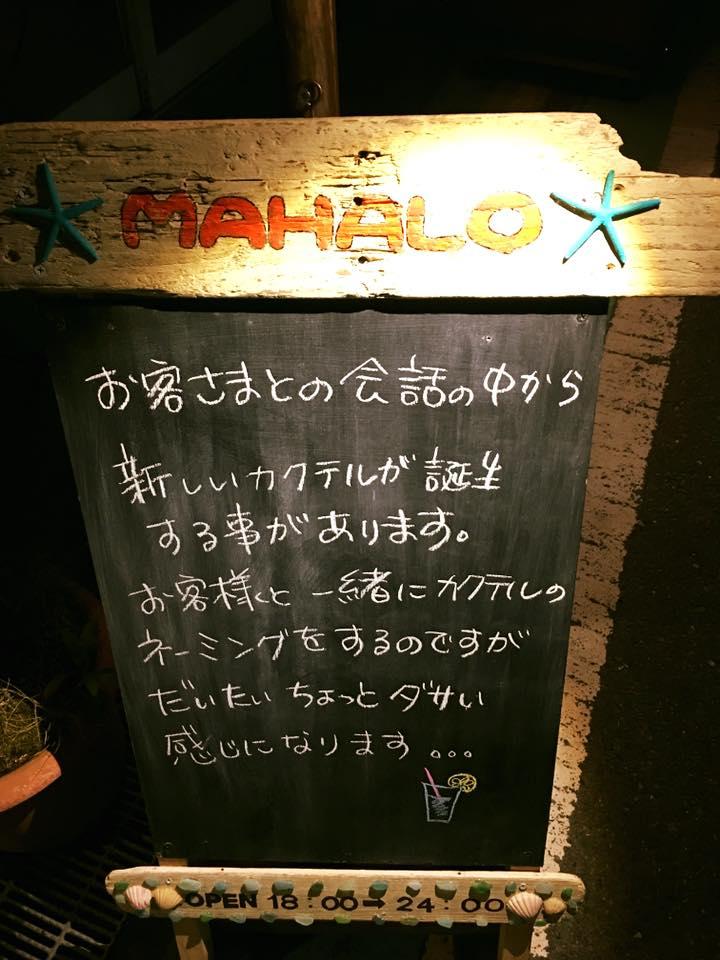 MAHALO
お客さまとの会話の中から
新しいカクテルが誕生
する事があります。
お客様と一緒にカクテルの
ネーミングをするのですが
だいたいちょっとダサい
感じになります...
OPEN 18:00→24:00